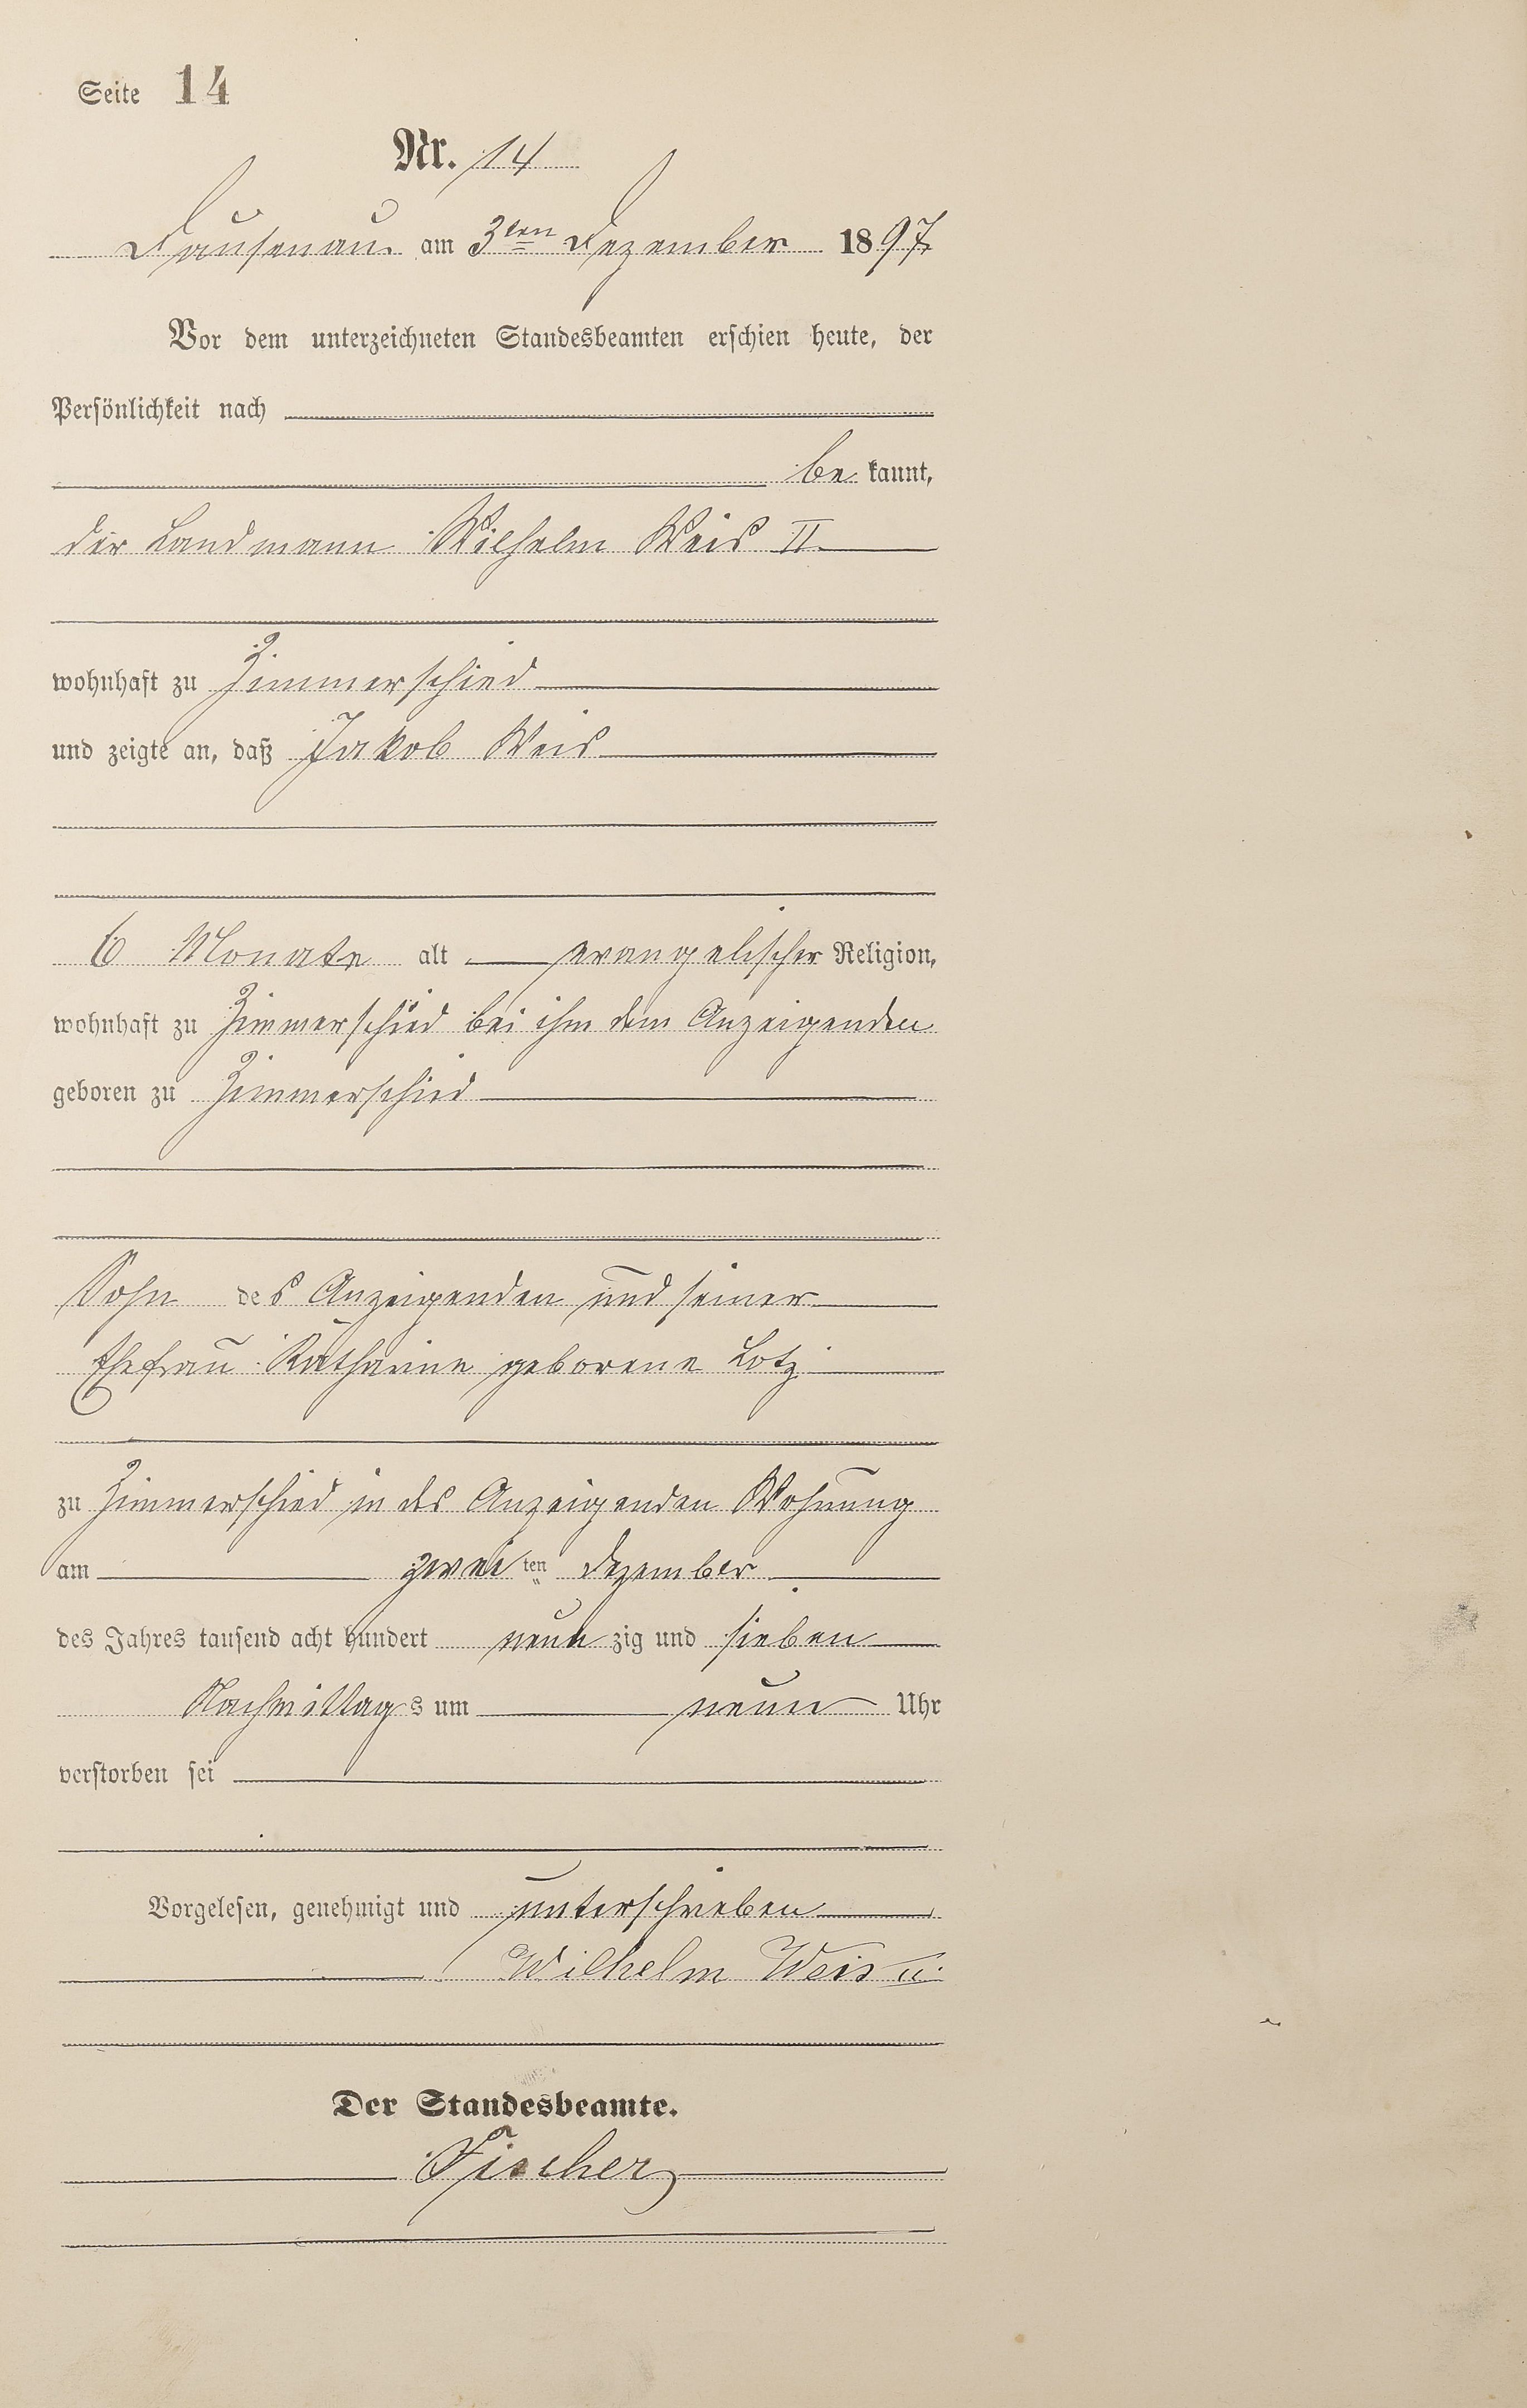 Seite 14
Nr. 14
Dausenau am 3ten Dezember 1897
Vor dem unterzeichneten Standesbeamten erschien heute, der
Persönlichkeit nach
be kannt,
der Landmann Wilhelm Weis II
wohnhaft zu Zimmerschied
und zeigte an, daß Jakob Weis
6 Monate alt evangelischer Religion,
wohnhaft zu Zimmerschied bei ihm dem Anzeigenden
geboren zu Zimmerschied
Sohn des Anzeigenden und seiner
Ehefrau Katharine geborene Lotz
zu Zimmerschied in des Anzeigenden Wohnung
am zwei ten Dezember
des Jahres tausend acht hundert neun zig und sieben
Nachmittags um neun Uhr
verstorben sei
Vorgelesen, genehmigt und unterschrieben
Wilhelm Weis II.
Der Standesbeamte.
Fischer